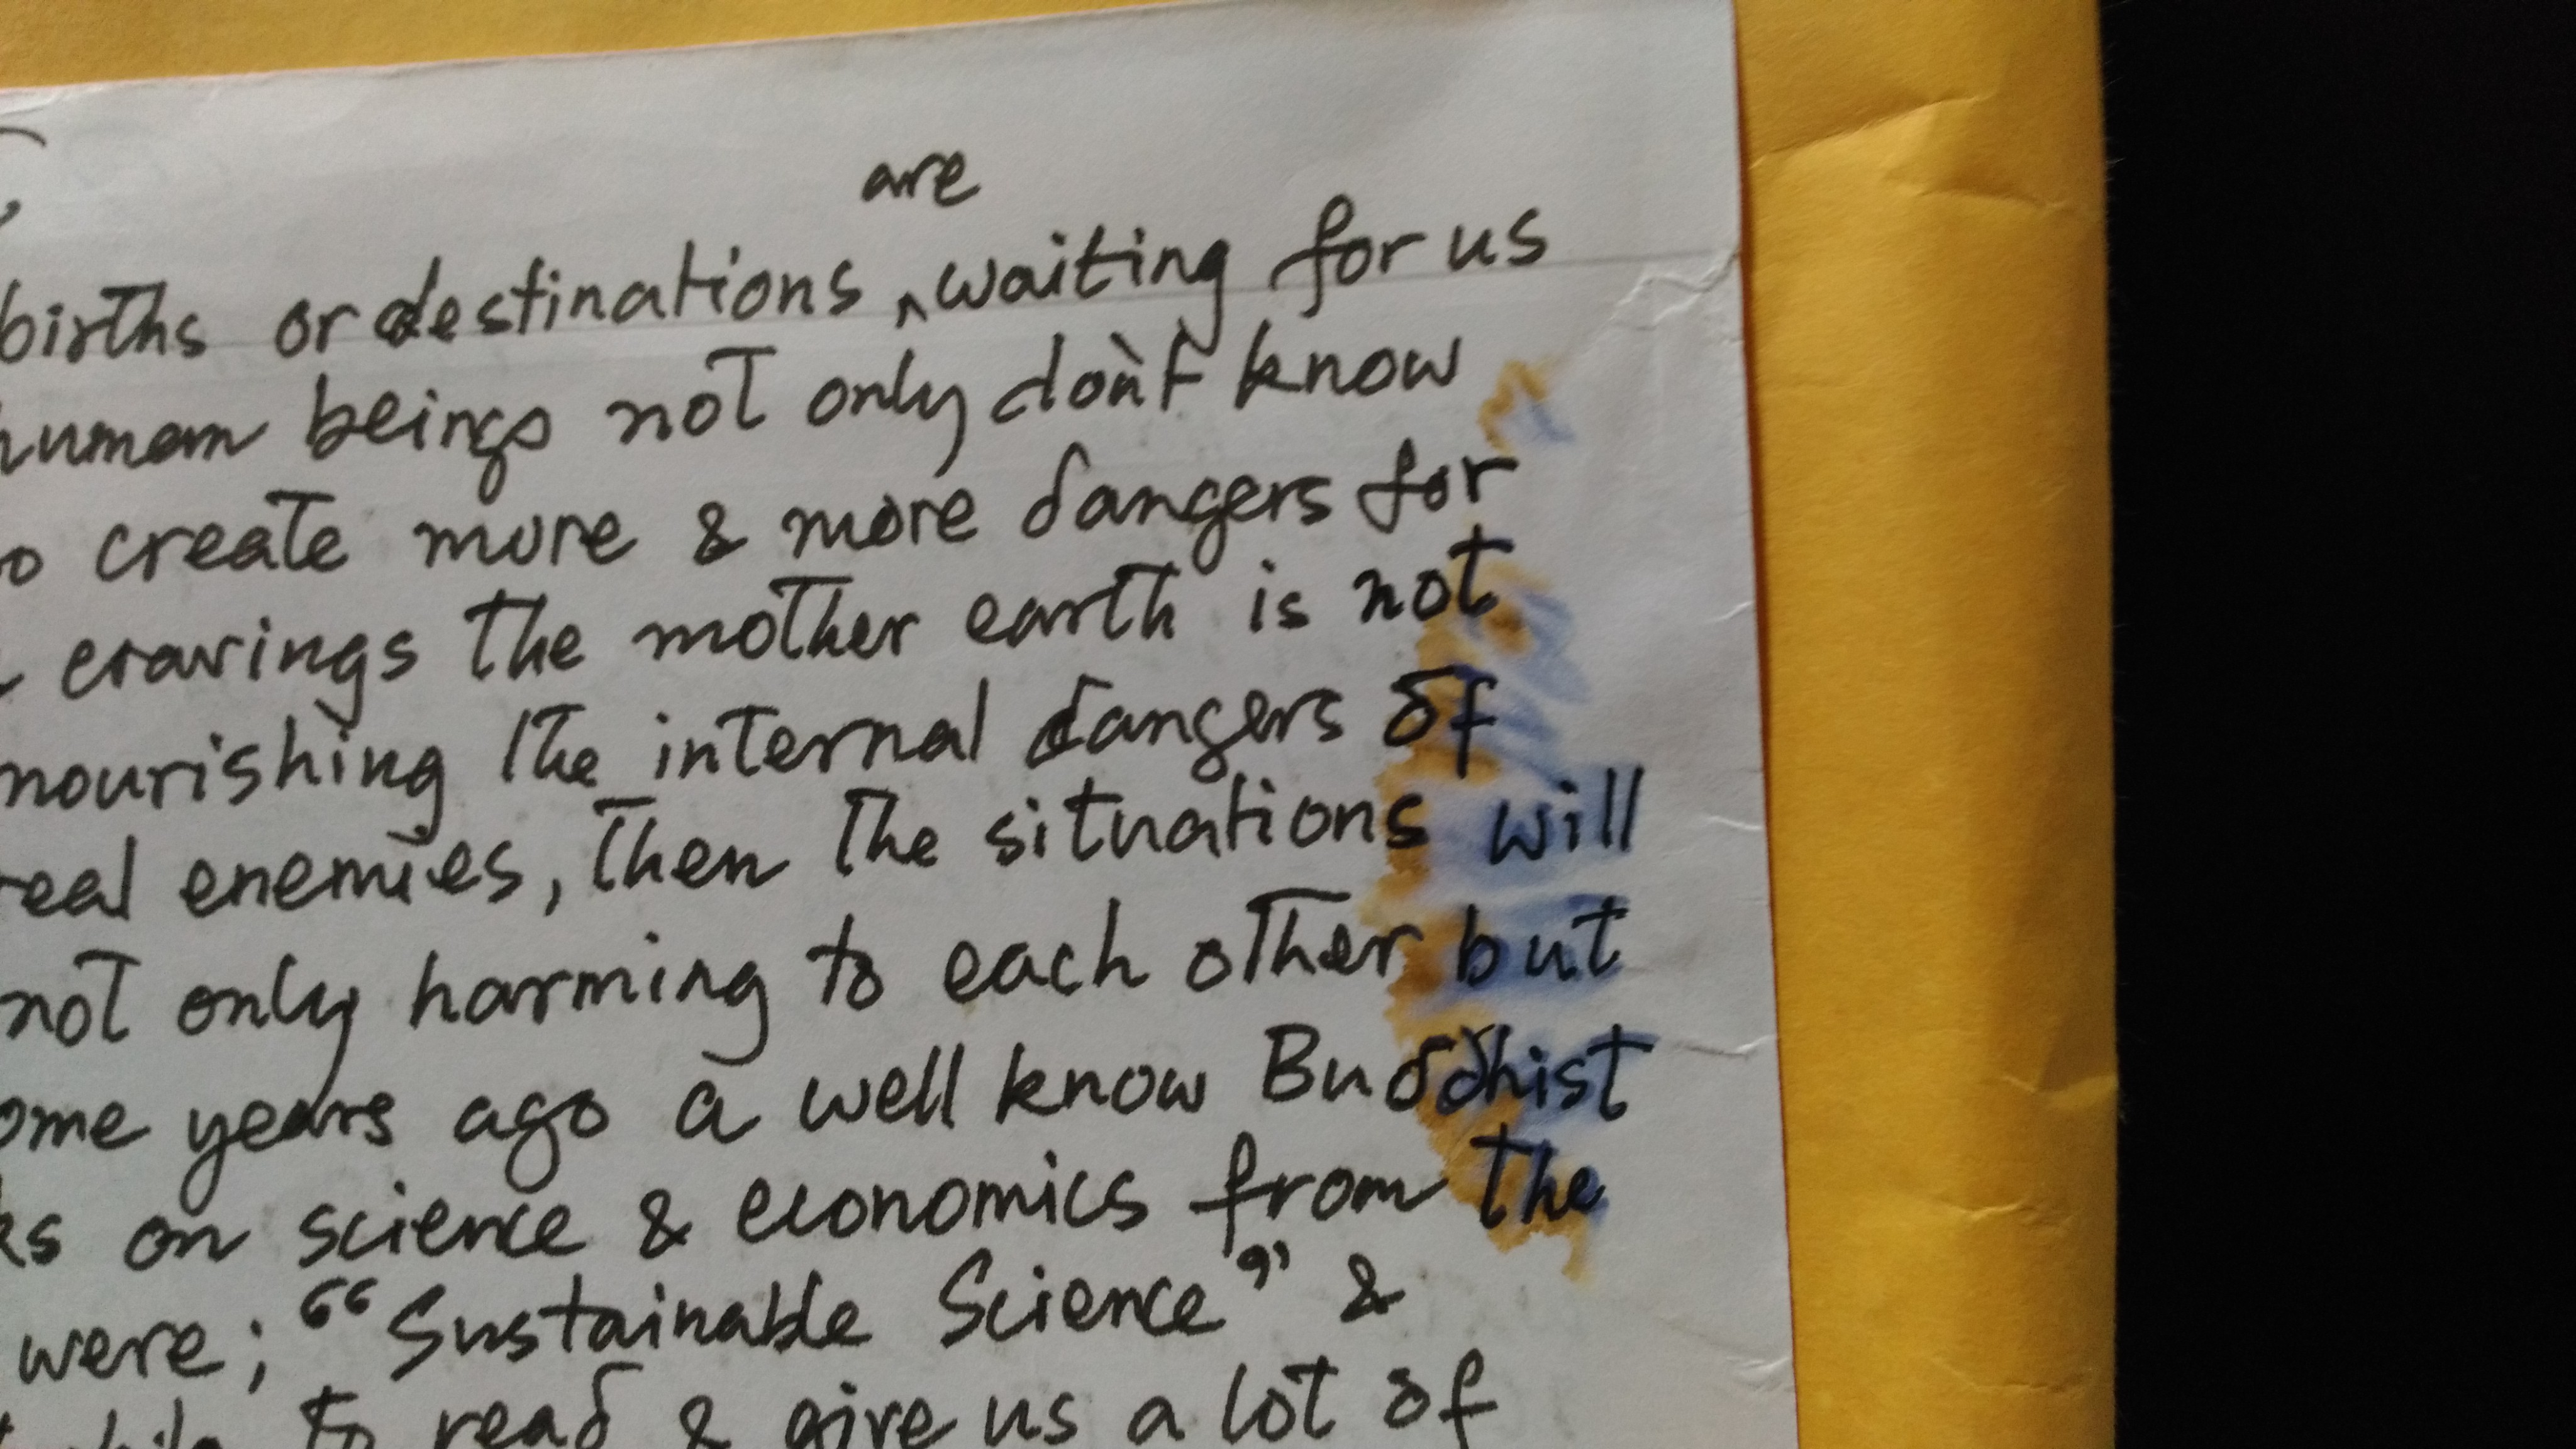 are
births or destinations ‸ waiting for us
human beings not only don't know
o create more & more dangers for
cravings the mother earth is not
nourishing the internal dangers of
real enemies, then the situations will
not only harming to each other but
ome years ago a well know Buddhist
ks on science & economics from the
were; "Sustainable Science" &
to read & give us a lot of